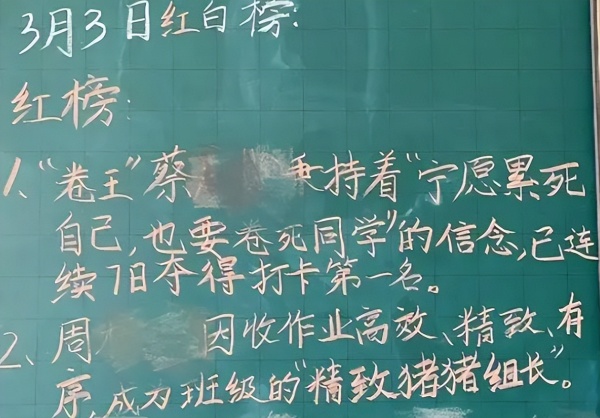 3月3日红白榜:
红榜:
1、“卷王”蔡 秉持着“宁愿累死
自己,也要卷死同学”的信念,已连
续7日夺得打卡第一名。
2、周 因收作业高效、精致、有
序,成为班级的“精致猪猪组长”。